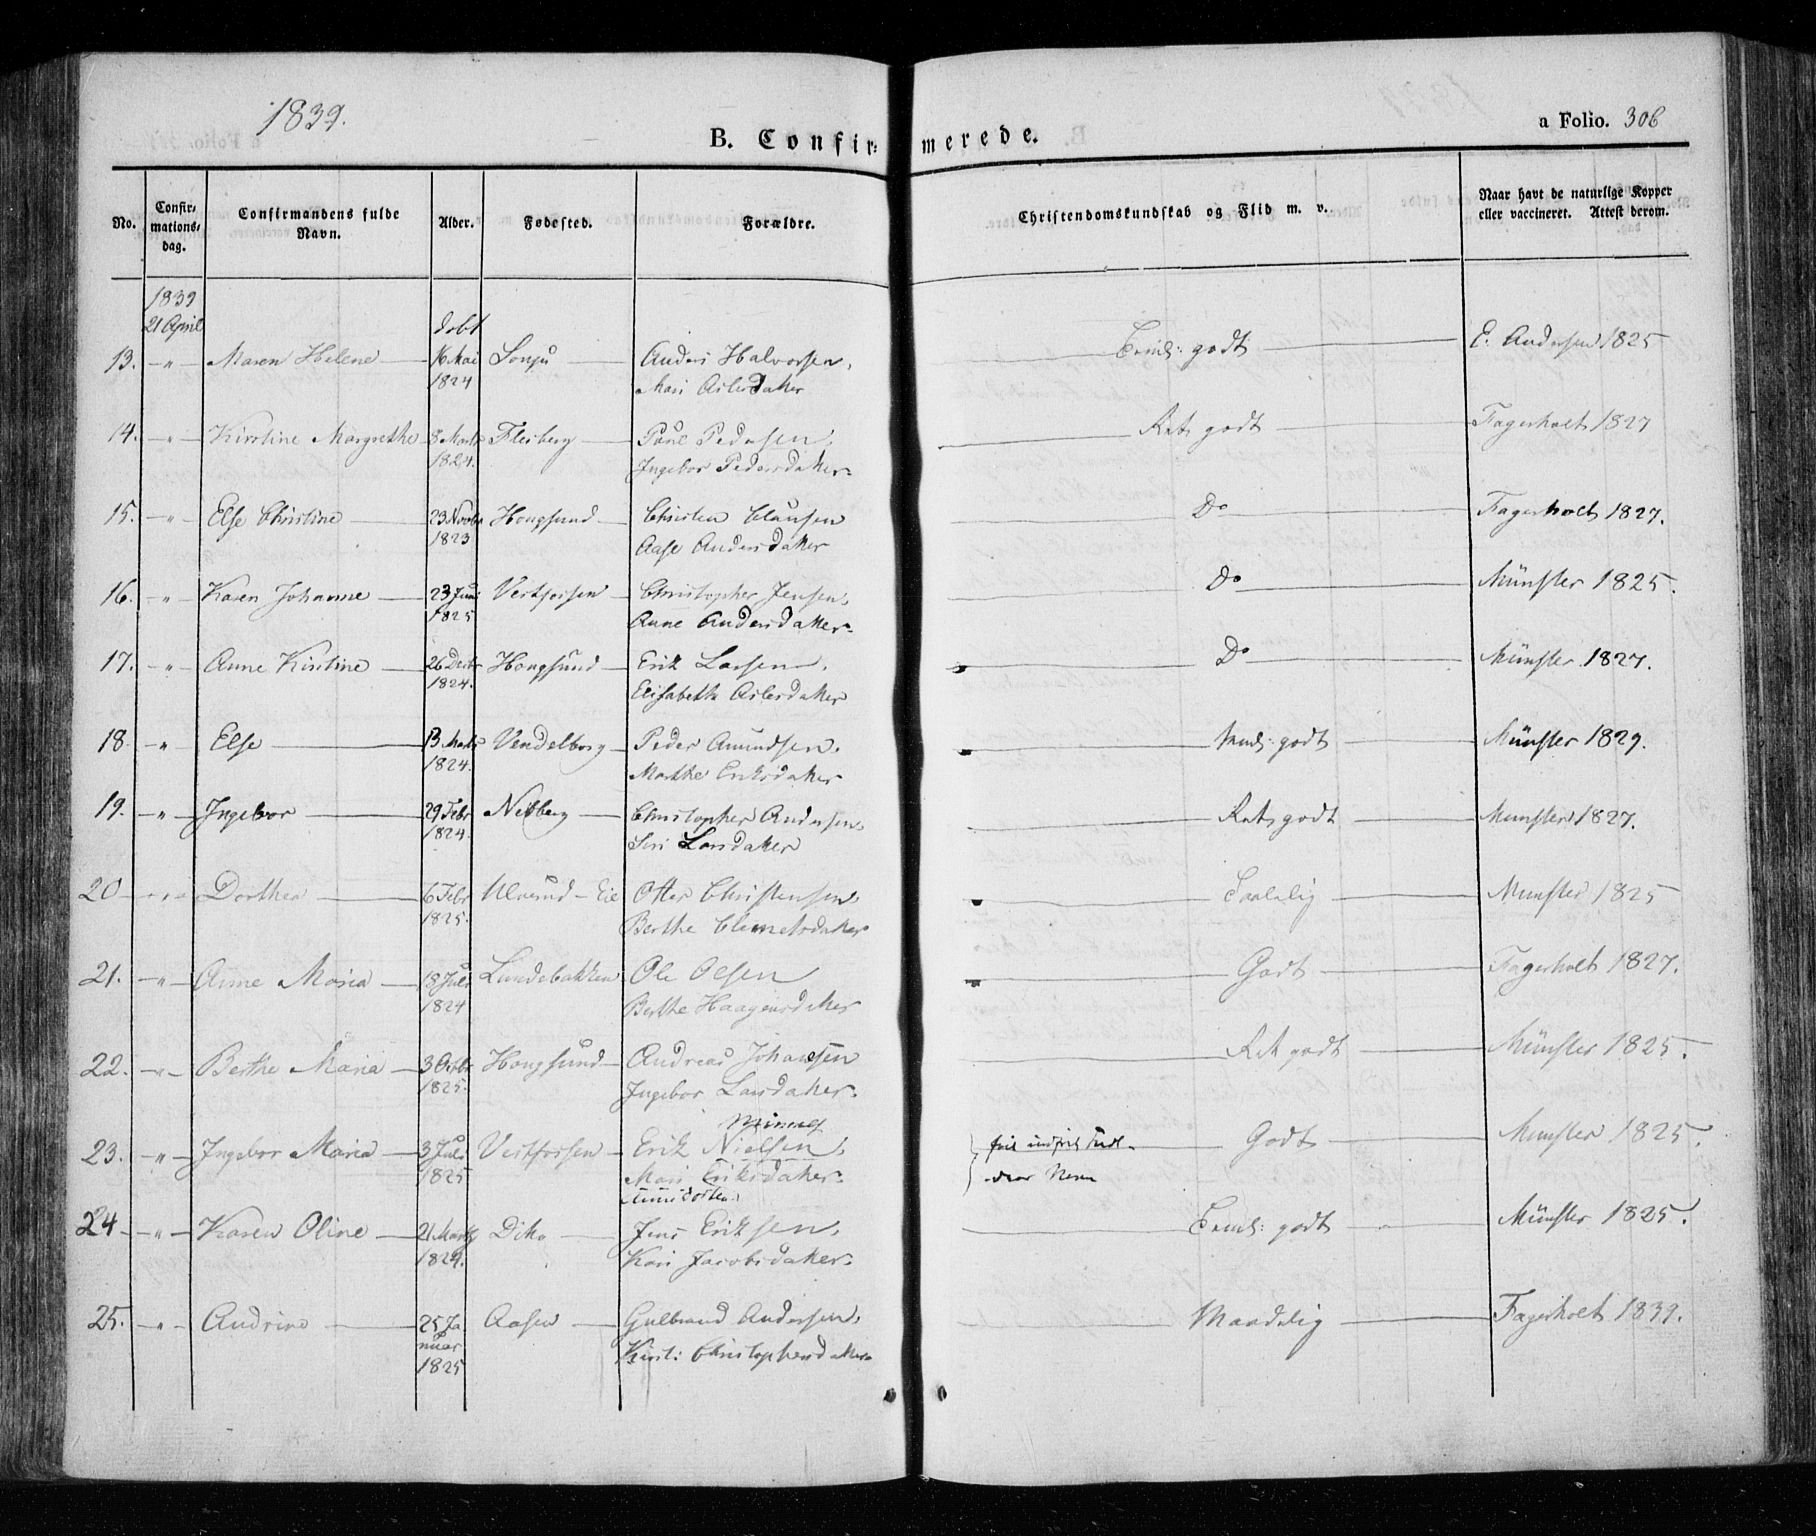 1839.
B. Confirmerede.
a Folio. 306
No.
Confirmationsdag.
Confirmandens fulde Navn.
Alder.
Fødested.
Forældre.
Christendomskundskab og Flid m. v.
Naar havt de naturlige Kopper eller vaccineret. Attest derom.
1839
21 April
døbt
13. -"- Maren Helene — 16 Mai Anders Halvorsen, godt E. Andersen 1825
1824 Mari Aslesdatter
14. -"- Kirstine Margrethe 8 Marts Flesberg — Poul Pedersen, godt — Fagerholt 1827
1824. Ingebor Pedersdatter
15. -"- Else Christine — 23 Novbr Hougsund — Christen Clausen Do — Fagerholt 1827.
1823 Aase Andersdatter
16. " Karen Johanne — 23 Vestfossen Christopher Jensen, Do — Münster 1825.
1825 Anne Andersdatter
17. -"- Anne Kirstine — 26 Decbr Hougsund — Erik Larsen, Do — Münster 1827.
1824. Elisabeth Aslesdatter
18. -"- Else — 13 Marts Vendelborg — Peder Amundsen. godt — Münster 1829.
1824. Marthe Eriksdatter
19. -"- Ingebor — 29 Febr — Christopher Andersen, godt — Munster 1827.
1824. Siri Larsdatter
20 -"- Dorthea — 6 Febr Ulvesund - Eie Christensen, Taalelig — Munster 1825
1825. Berthe Clemetsdatter
21. -"- Anne Maria — 18 Juli Lundebakken Ole Olsen Godt — Fagerholt 1827.
1824 Berthe Haagensdatter
22. -"- Berthe Maria — 3 Octbr Hougsund — Andreas Johansen godt — Münster 1825.
1825. Ingebor Larsdatter
23. -"- Ingebor Maria — 3 Juli Vestfossen — Erik Nielsen, Godt — Munster 1825.
1825 Mari Eriksdatter
24 -"- Karen Oline — 21 Marts Dito — Jens Eriksen, godt — Münster 1825.
1824. Kari Jacobsdatter
25. -"- Andrine — 25 Ja Aasen — Gulbrand Andersen, Maadelig — Fagerholt 1839.
nuar Kirsti Christophersdatter
1825